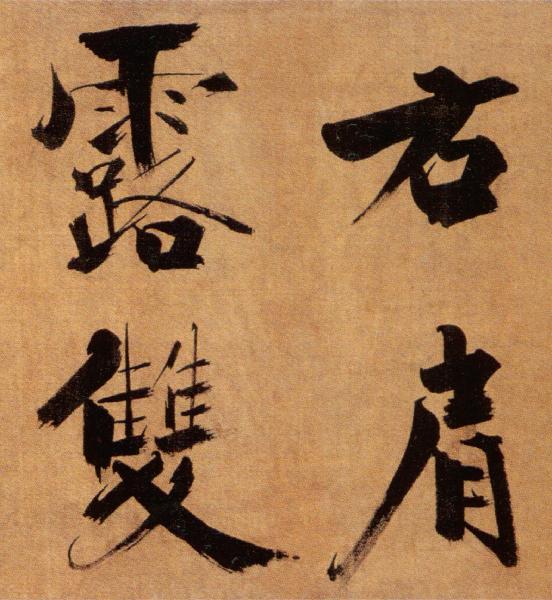 右肩
露雙